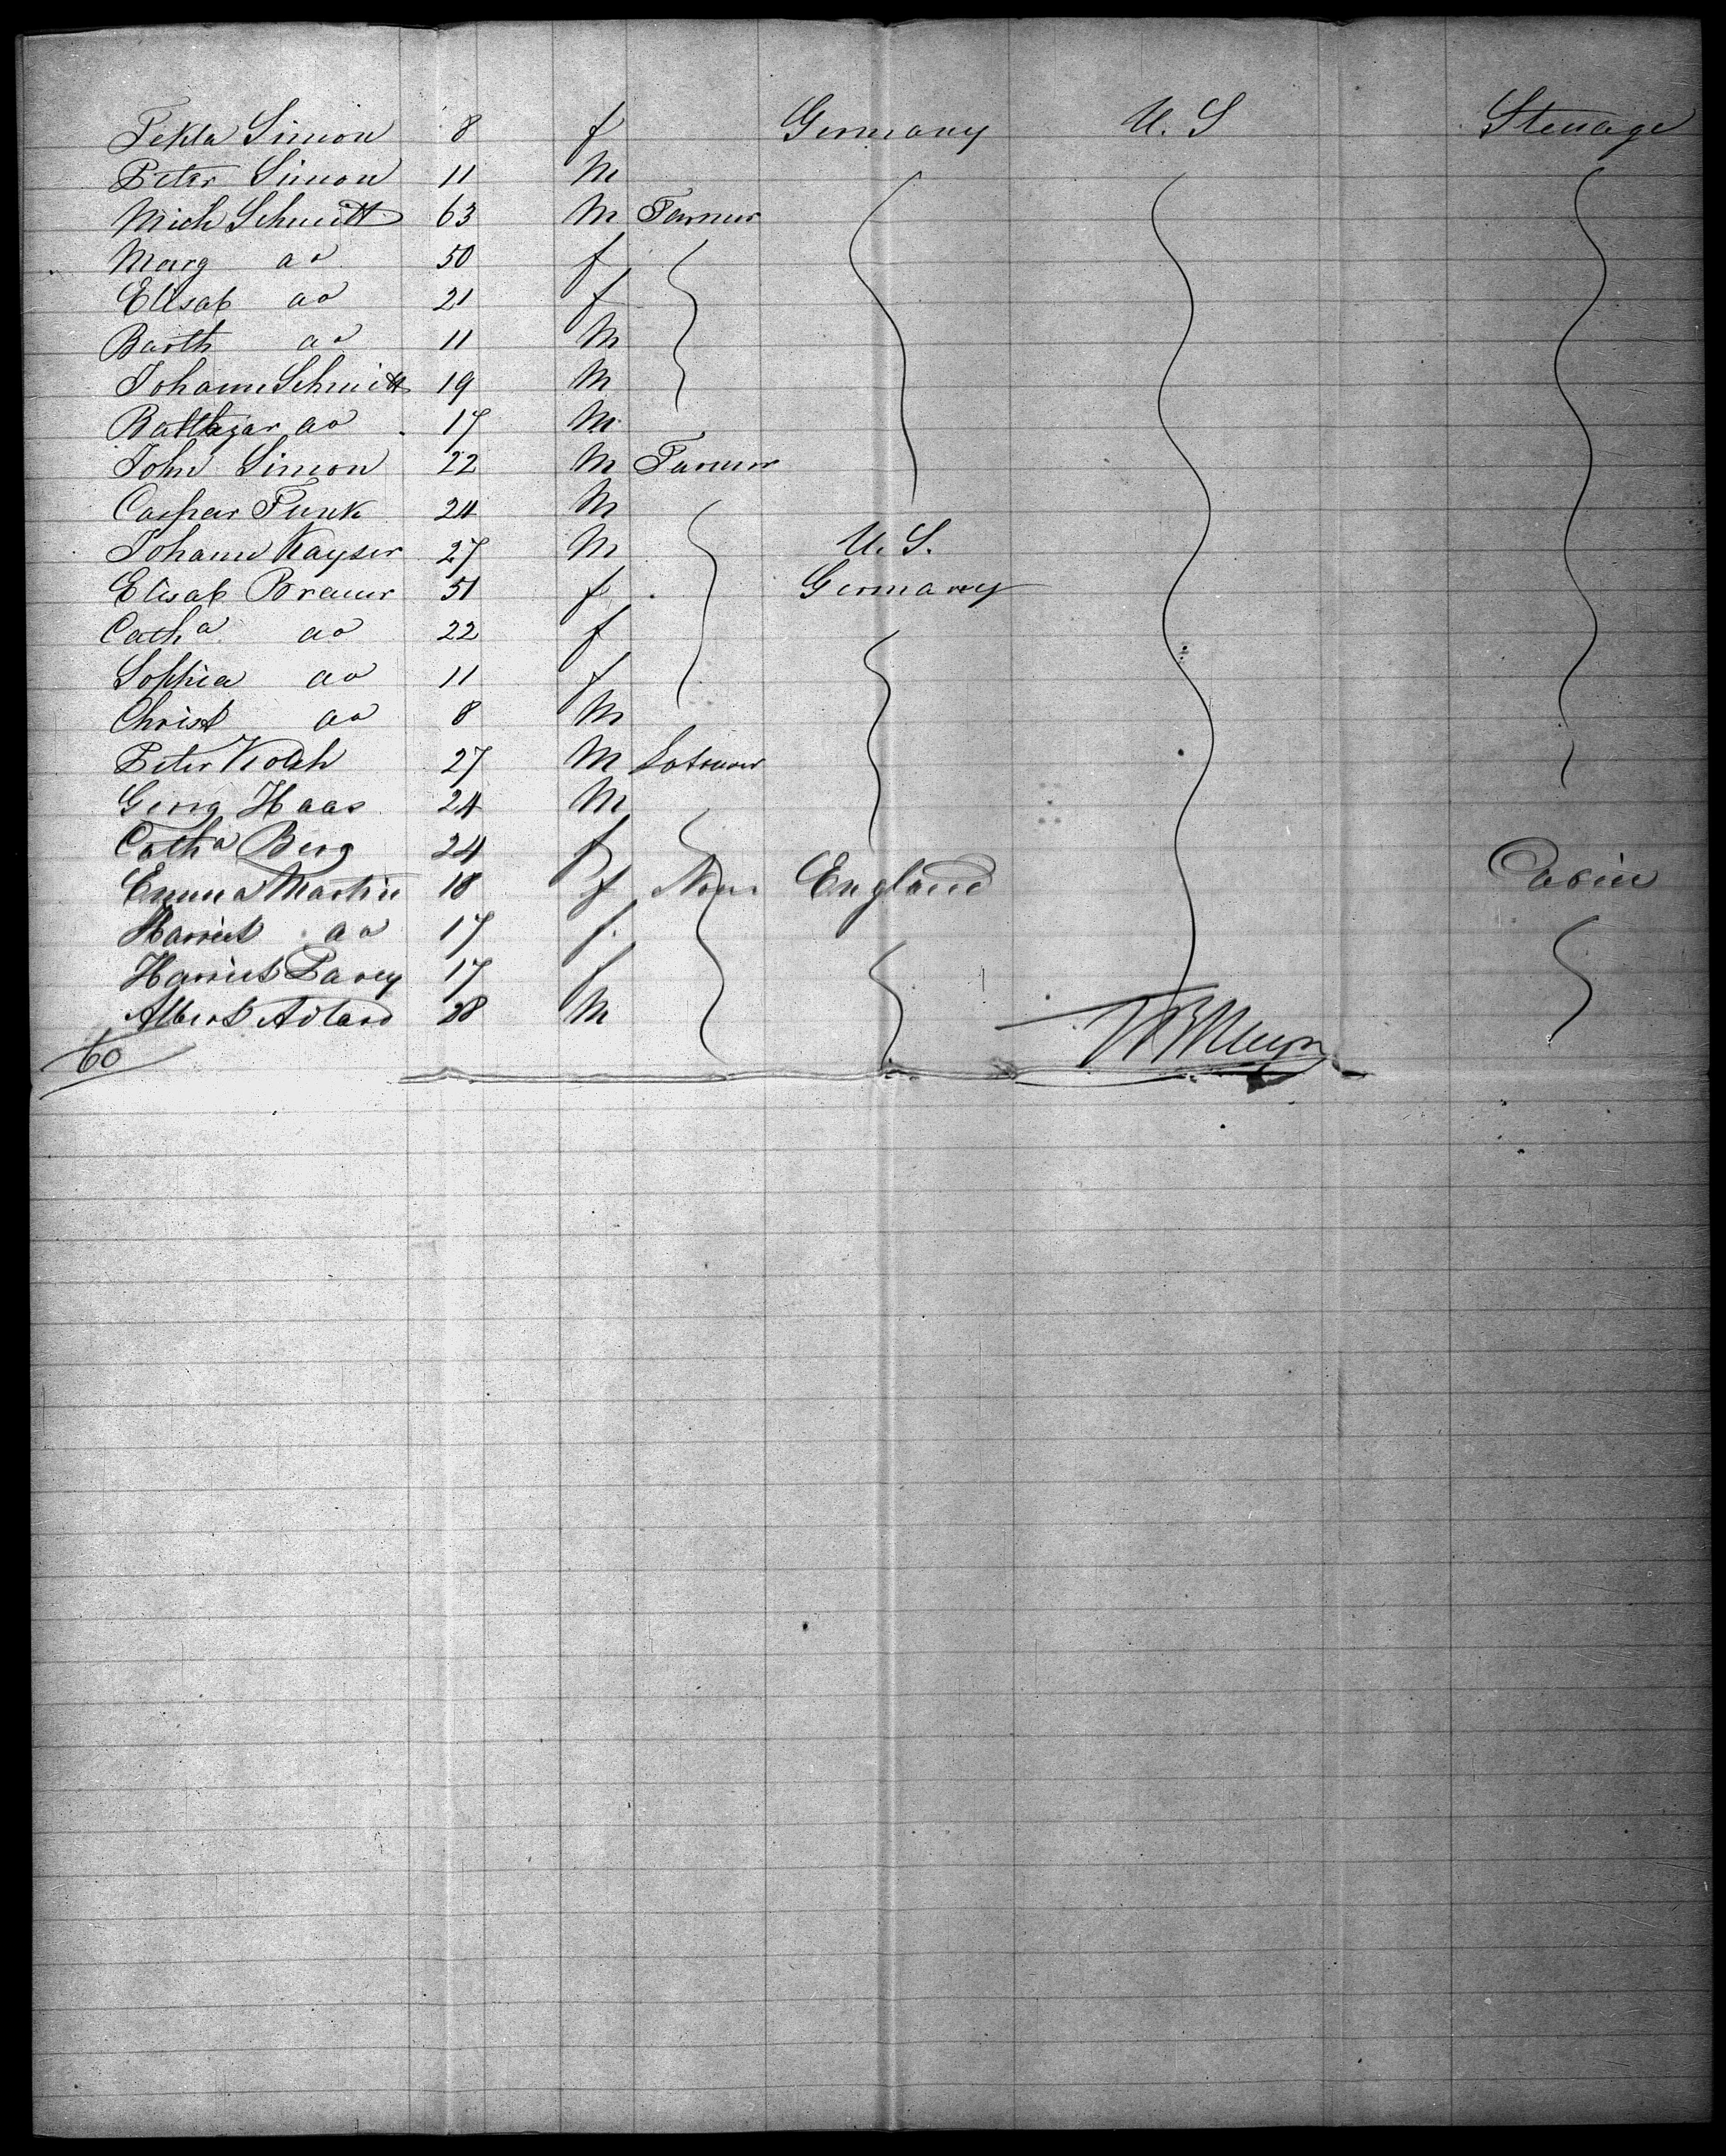 Tekla Simon 8 f Germany U. S Steerage
Peter Simon 11 M
Mich Schmitt 63 M Farmer
Marg do 50 f
Elisab do 21 f
Barth do 11 M
Johann Schmitt 19 M
Balthazar do 17 M
John Simon 22 M Farmer
Caspar Funk 24 M
Johann Kayser 27 M U. S.
Elisab Brauer 51 f Germany
Cath a do 22 f
Sophia do 11 f
Christ do 8 M
Peter Kolch 27 M
Georg Haas 24 M
Cath a Berg 24 f
Emma Martin 18 f None England Cabin
Harriet do 17 f
Harriet Pavey 17 f
Albert Adlard 28 M
60